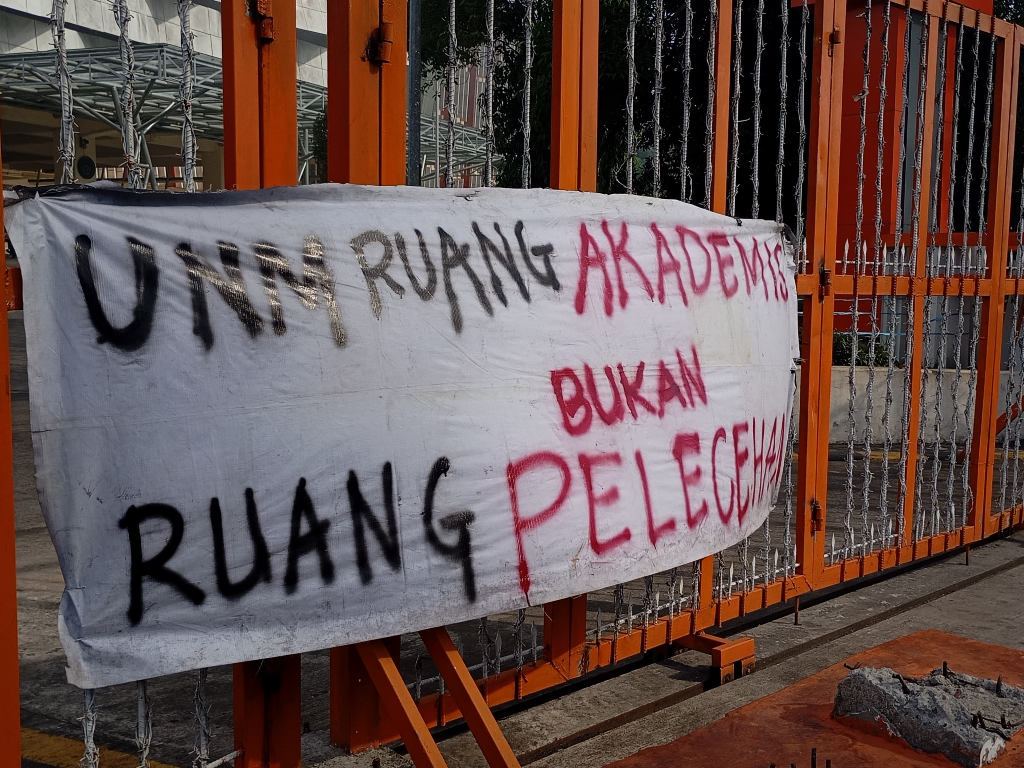 UNM RUANG AKADEMIS
BUKAN
RUANG PELECEHAN